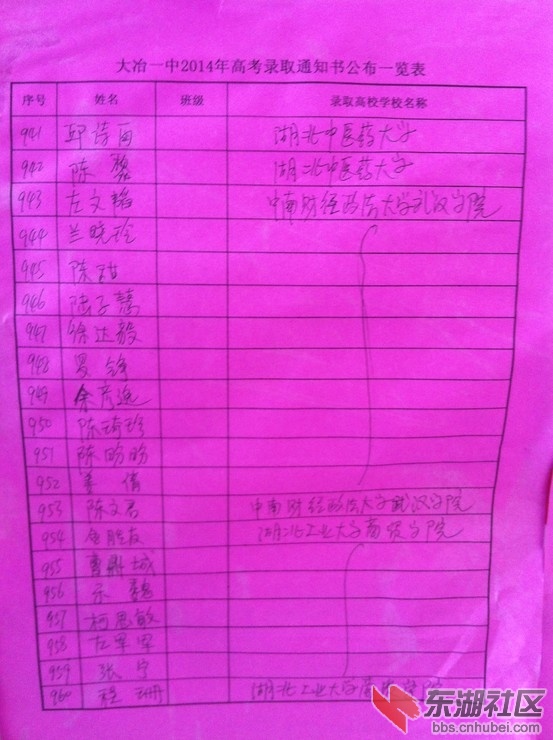 大冶一中2014年高考录取通知书公布一览表
序号 姓名 班级 录取高校学校名称
941 邱诗雨 湖北中医药大学
942 陈黎 湖北中医药大学
943 左文韬 中南财经政法大学武汉学院
944 兰晓玲
945 陈甜
946 陆子蔼
947 徐达毅
948 夏锋
949 余彦逸
950 陈琦珍
951 陈盼盼
952 姜倩
953 陈文君 中南财经政法大学武汉学院
954 金胜友 湖北工业大学商贸学院
955 曹鼎城
956 乐
957 柯思敏
958 左军军
959 张宁
960 程珊 湖北工业大学商贸学院
东湖社区
bbs.cnhubei.com